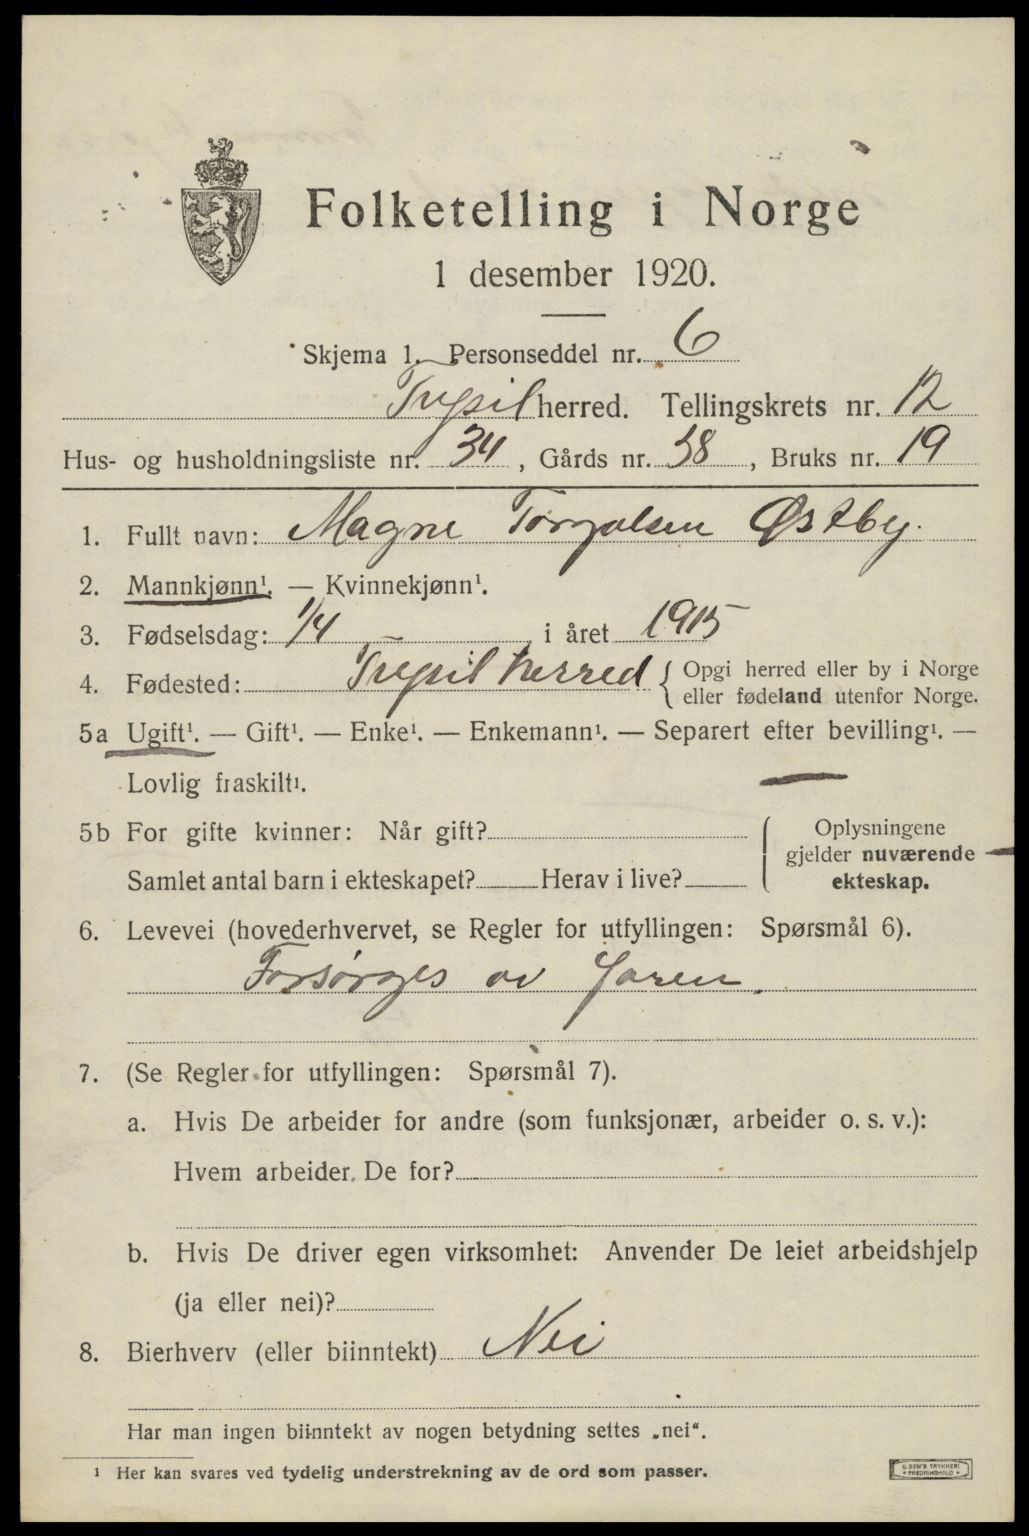 Folketelling i Norge
1 desember 1920.
Skjema 1. Personseddel nr. 6
Trysil herred. Tellingskrets nr. 12
Hus- og husholdningsliste nr. 34, Gårds nr. 38, Bruks nr. 19
1. Fullt navn: Magne Torgalsen Østby.
2. Mannkjønn¹. — Kvinnekjønn¹.
3. Fødselsdag: 1/4 i året 1915
4. Fødested: Trysil herred { Opgi herred eller by i Norge
eller fødeland utenfor Norge.
5a Ugift¹. — Gift¹. — Enke¹. — Enkemann¹. — Separert efter bevilling¹. —
Lovlig fraskilt¹.
5b For gifte kvinner: Når gift?
Samlet antal barn i ekteskapet? Herav i live?
Oplysningene
gjelder nuværende
ekteskap.
6. Levevei (hovederhvervet, se Regler for utfyllingen: Spørsmål 6).
Forsørges av Faren.
7. (Se Regler for utfyllingen: Spørsmål 7).
a. Hvis De arbeider for andre (som funksjonær, arbeider o. s. v.):
Hvem arbeider De for?
b. Hvis De driver egen virksomhet: Anvender De leiet arbeidshjelp
(ja eller nei)?
8. Bierhverv (eller biinntekt) Nei
Har man ingen biinntekt av nogen betydning settes „nei“.
¹ Her kan svares ved tydelig understrekning av de ord som passer.